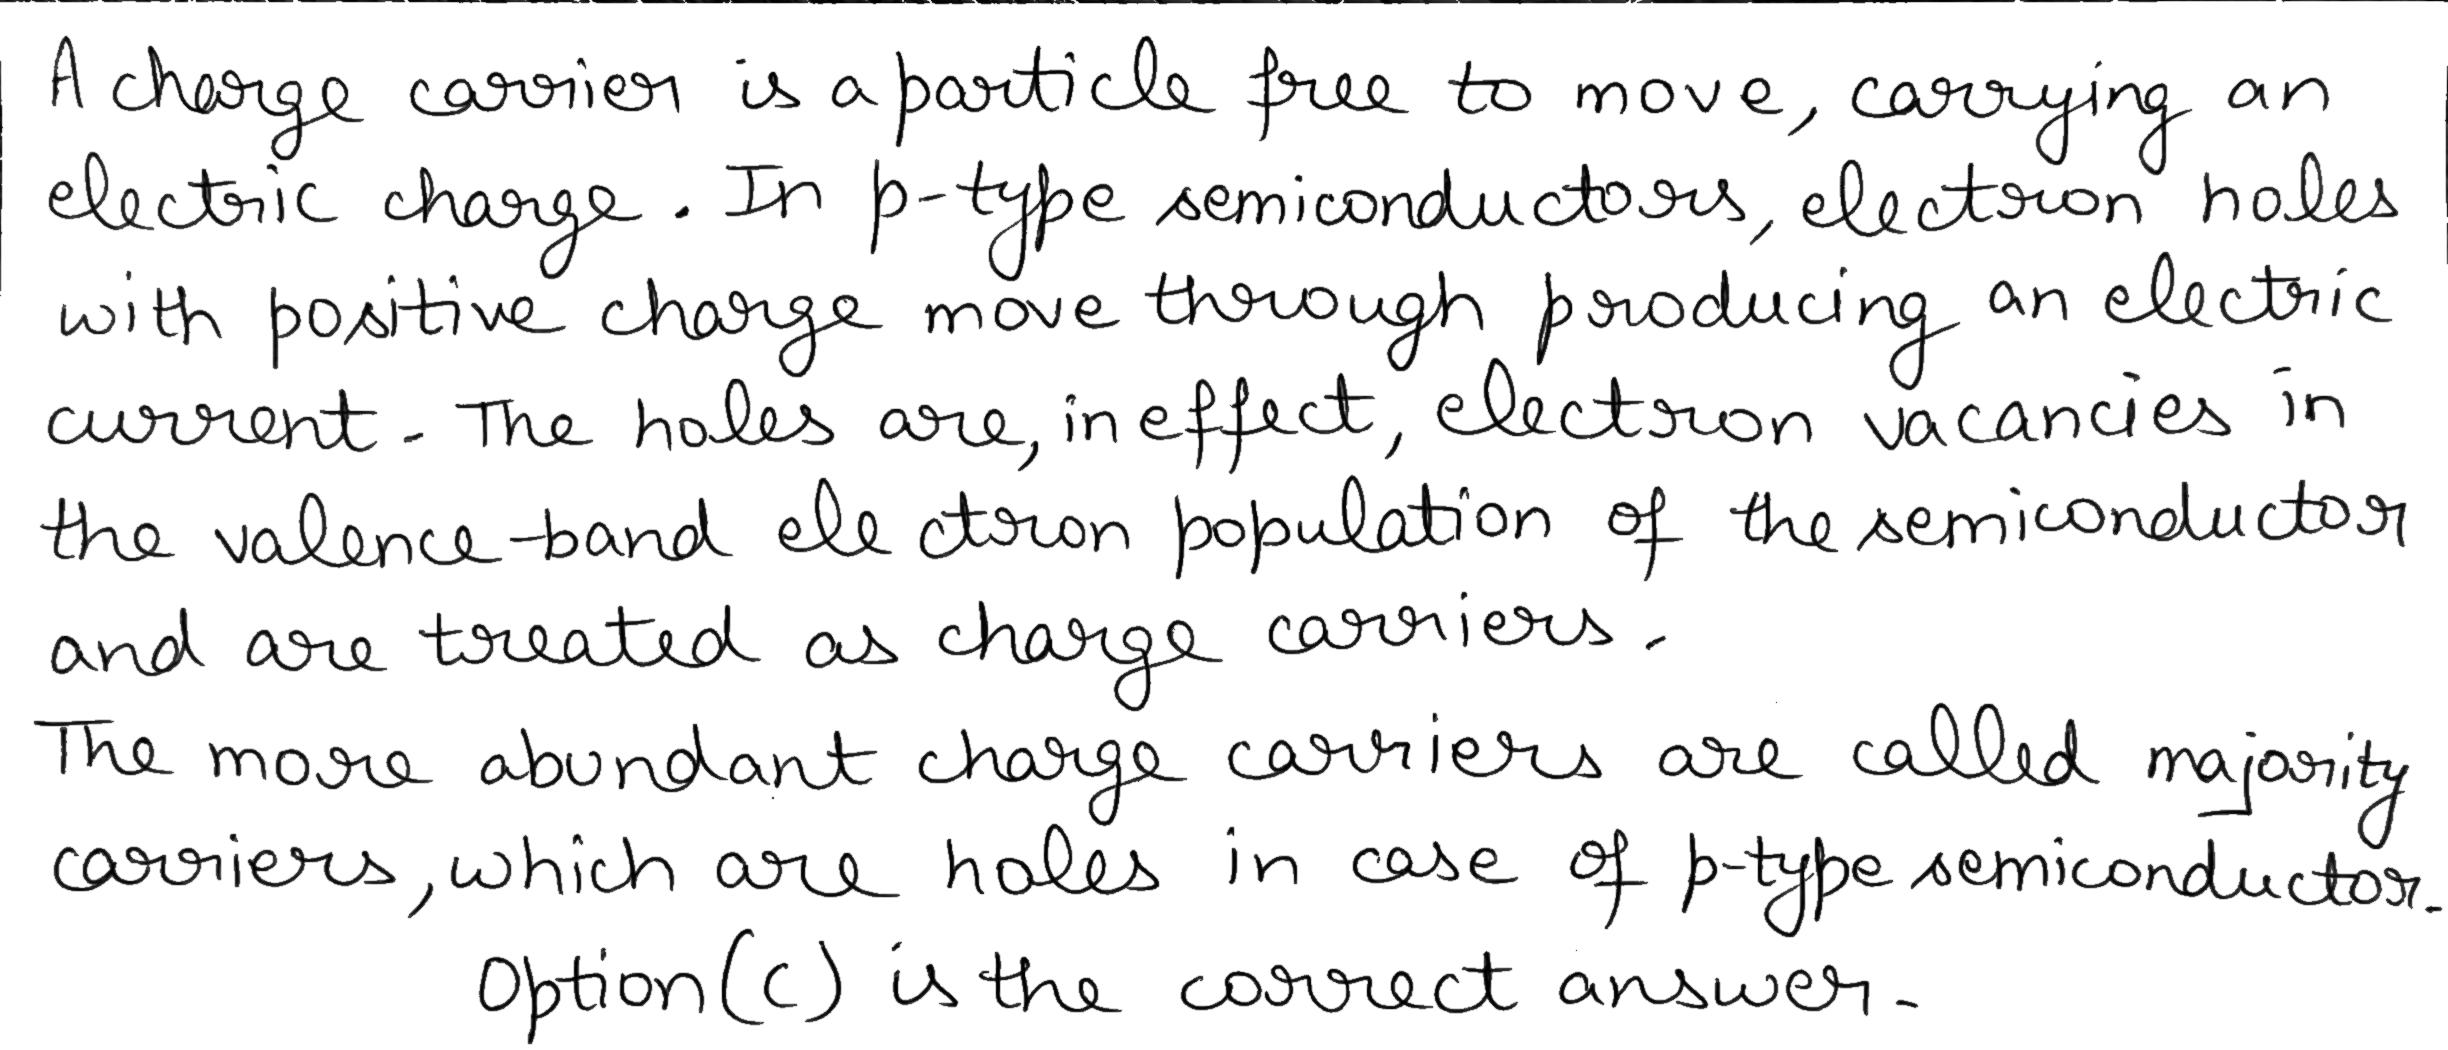 A charge carrier is a particle free to move, carrying an
electric charge. In p-type semiconductors, electron holes
with positive charge move through producing an electric
current. The holes are, in effect, electron vacancies in
the valence-band electron population of the semiconductor
and are treated as charge carriers.
The more abundant charge carriers are called majority
carriers, which are holes in case of p-type semiconductor.
Option (c) is the correct answer.